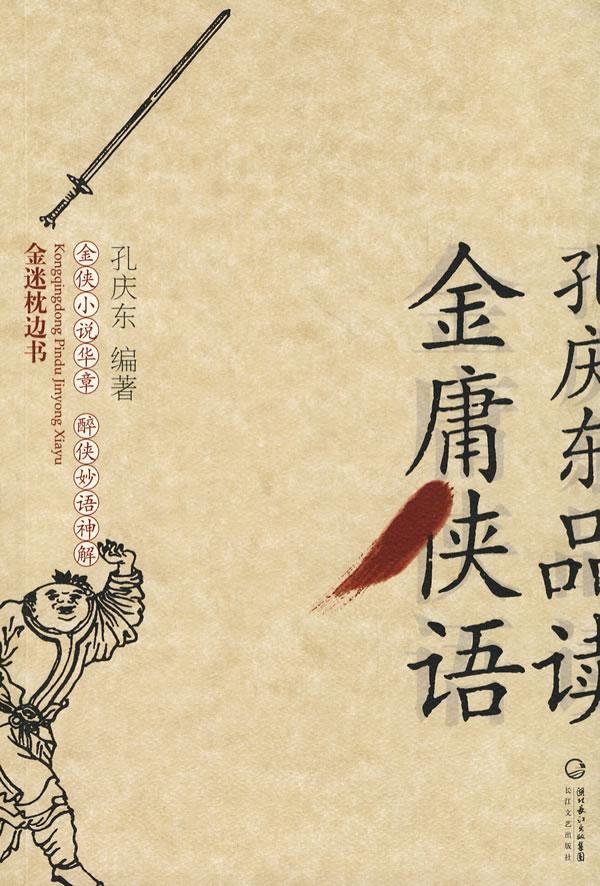 孔庆东品读
金庸侠语
孔庆东 编著
金侠小说华章 醉侠妙语神解
Kongqingdong Pindu Jinyong Xiayu
金迷枕边书
湖北长江出版集团
长江文艺出版社